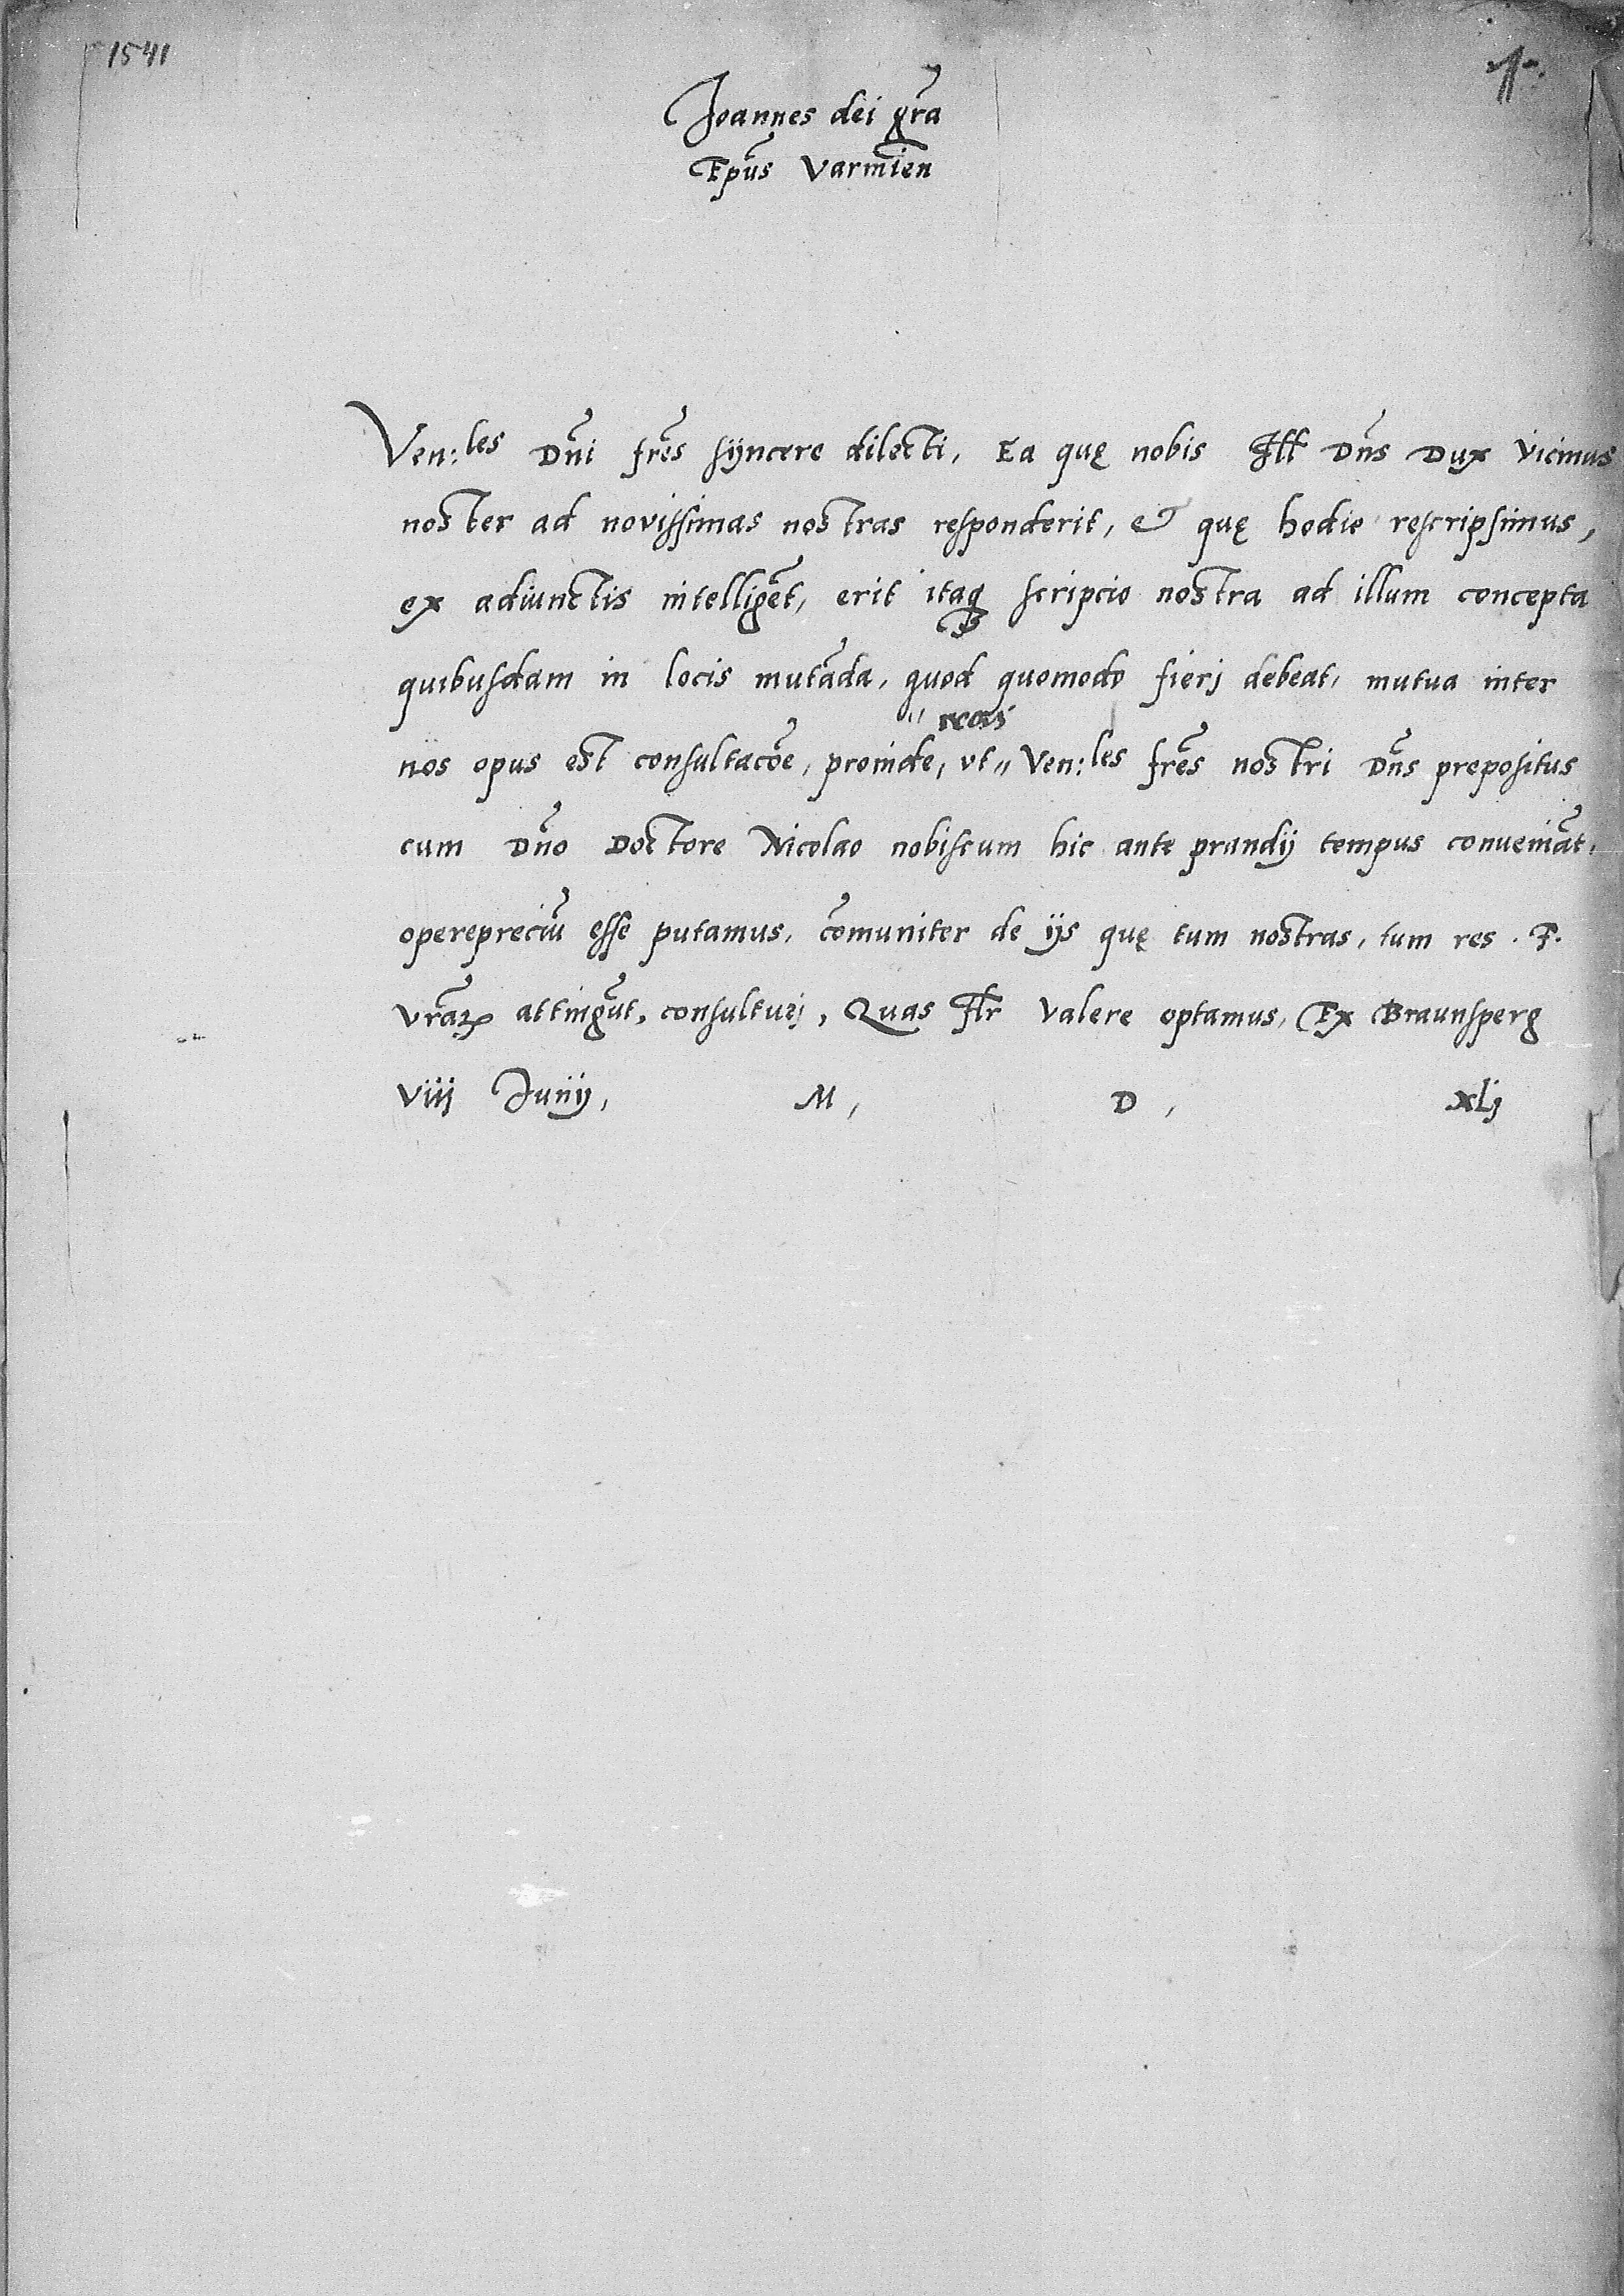 1541
Joannes dei gra
Epus Varmien
Ven:les Dni fres syncere dilecti, Ea quę nobis Ill Dns Dux vicinus
noster ad novissimas nostras responderit, & quę hodie rescripsimus,
ex adiunctis intelliget, erit itaq scripcio nostra ad illum concepta
quibusdam in locis mutada, quod quomodo fierj debeat, mutua inter
nos opus est consultacoe, proinde, vt
Ven:les fres nostri Dns prepositus
cum Dno Doctore Nicolao nobiscum hic ante prandij tempus conveniat,
operepreciu esse putamus, comuniter de ijs quę tum nostras, tum res . F.
vraꝝ attingut, consulturj, Quas Flr valere optamus, Ex Braunsperg
viij Junij, M, D, xlj